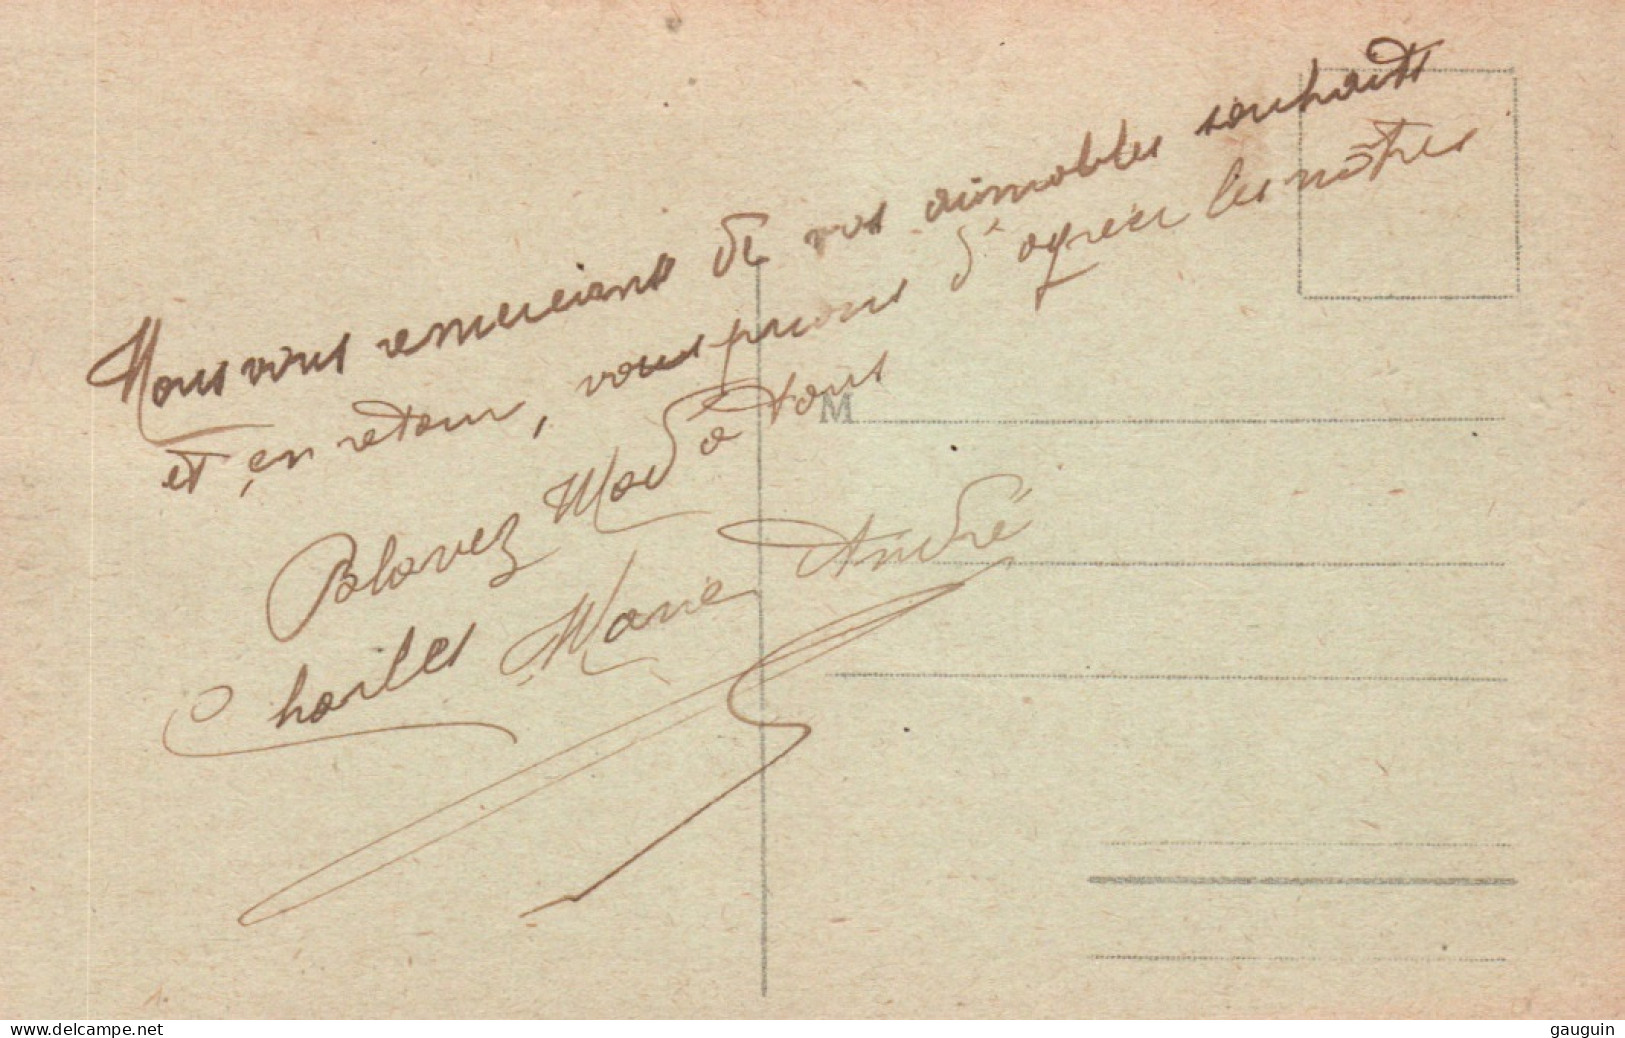 Nous vous remercions de vos aimables souhaits
et, en retour, vous prions d'agréer les nôtres
Blavez Mad à tous
Charles Marie André
M
www.delcampe.net
gauguin